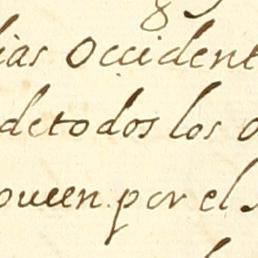 ias Occident
detodos los o
oueen. por el